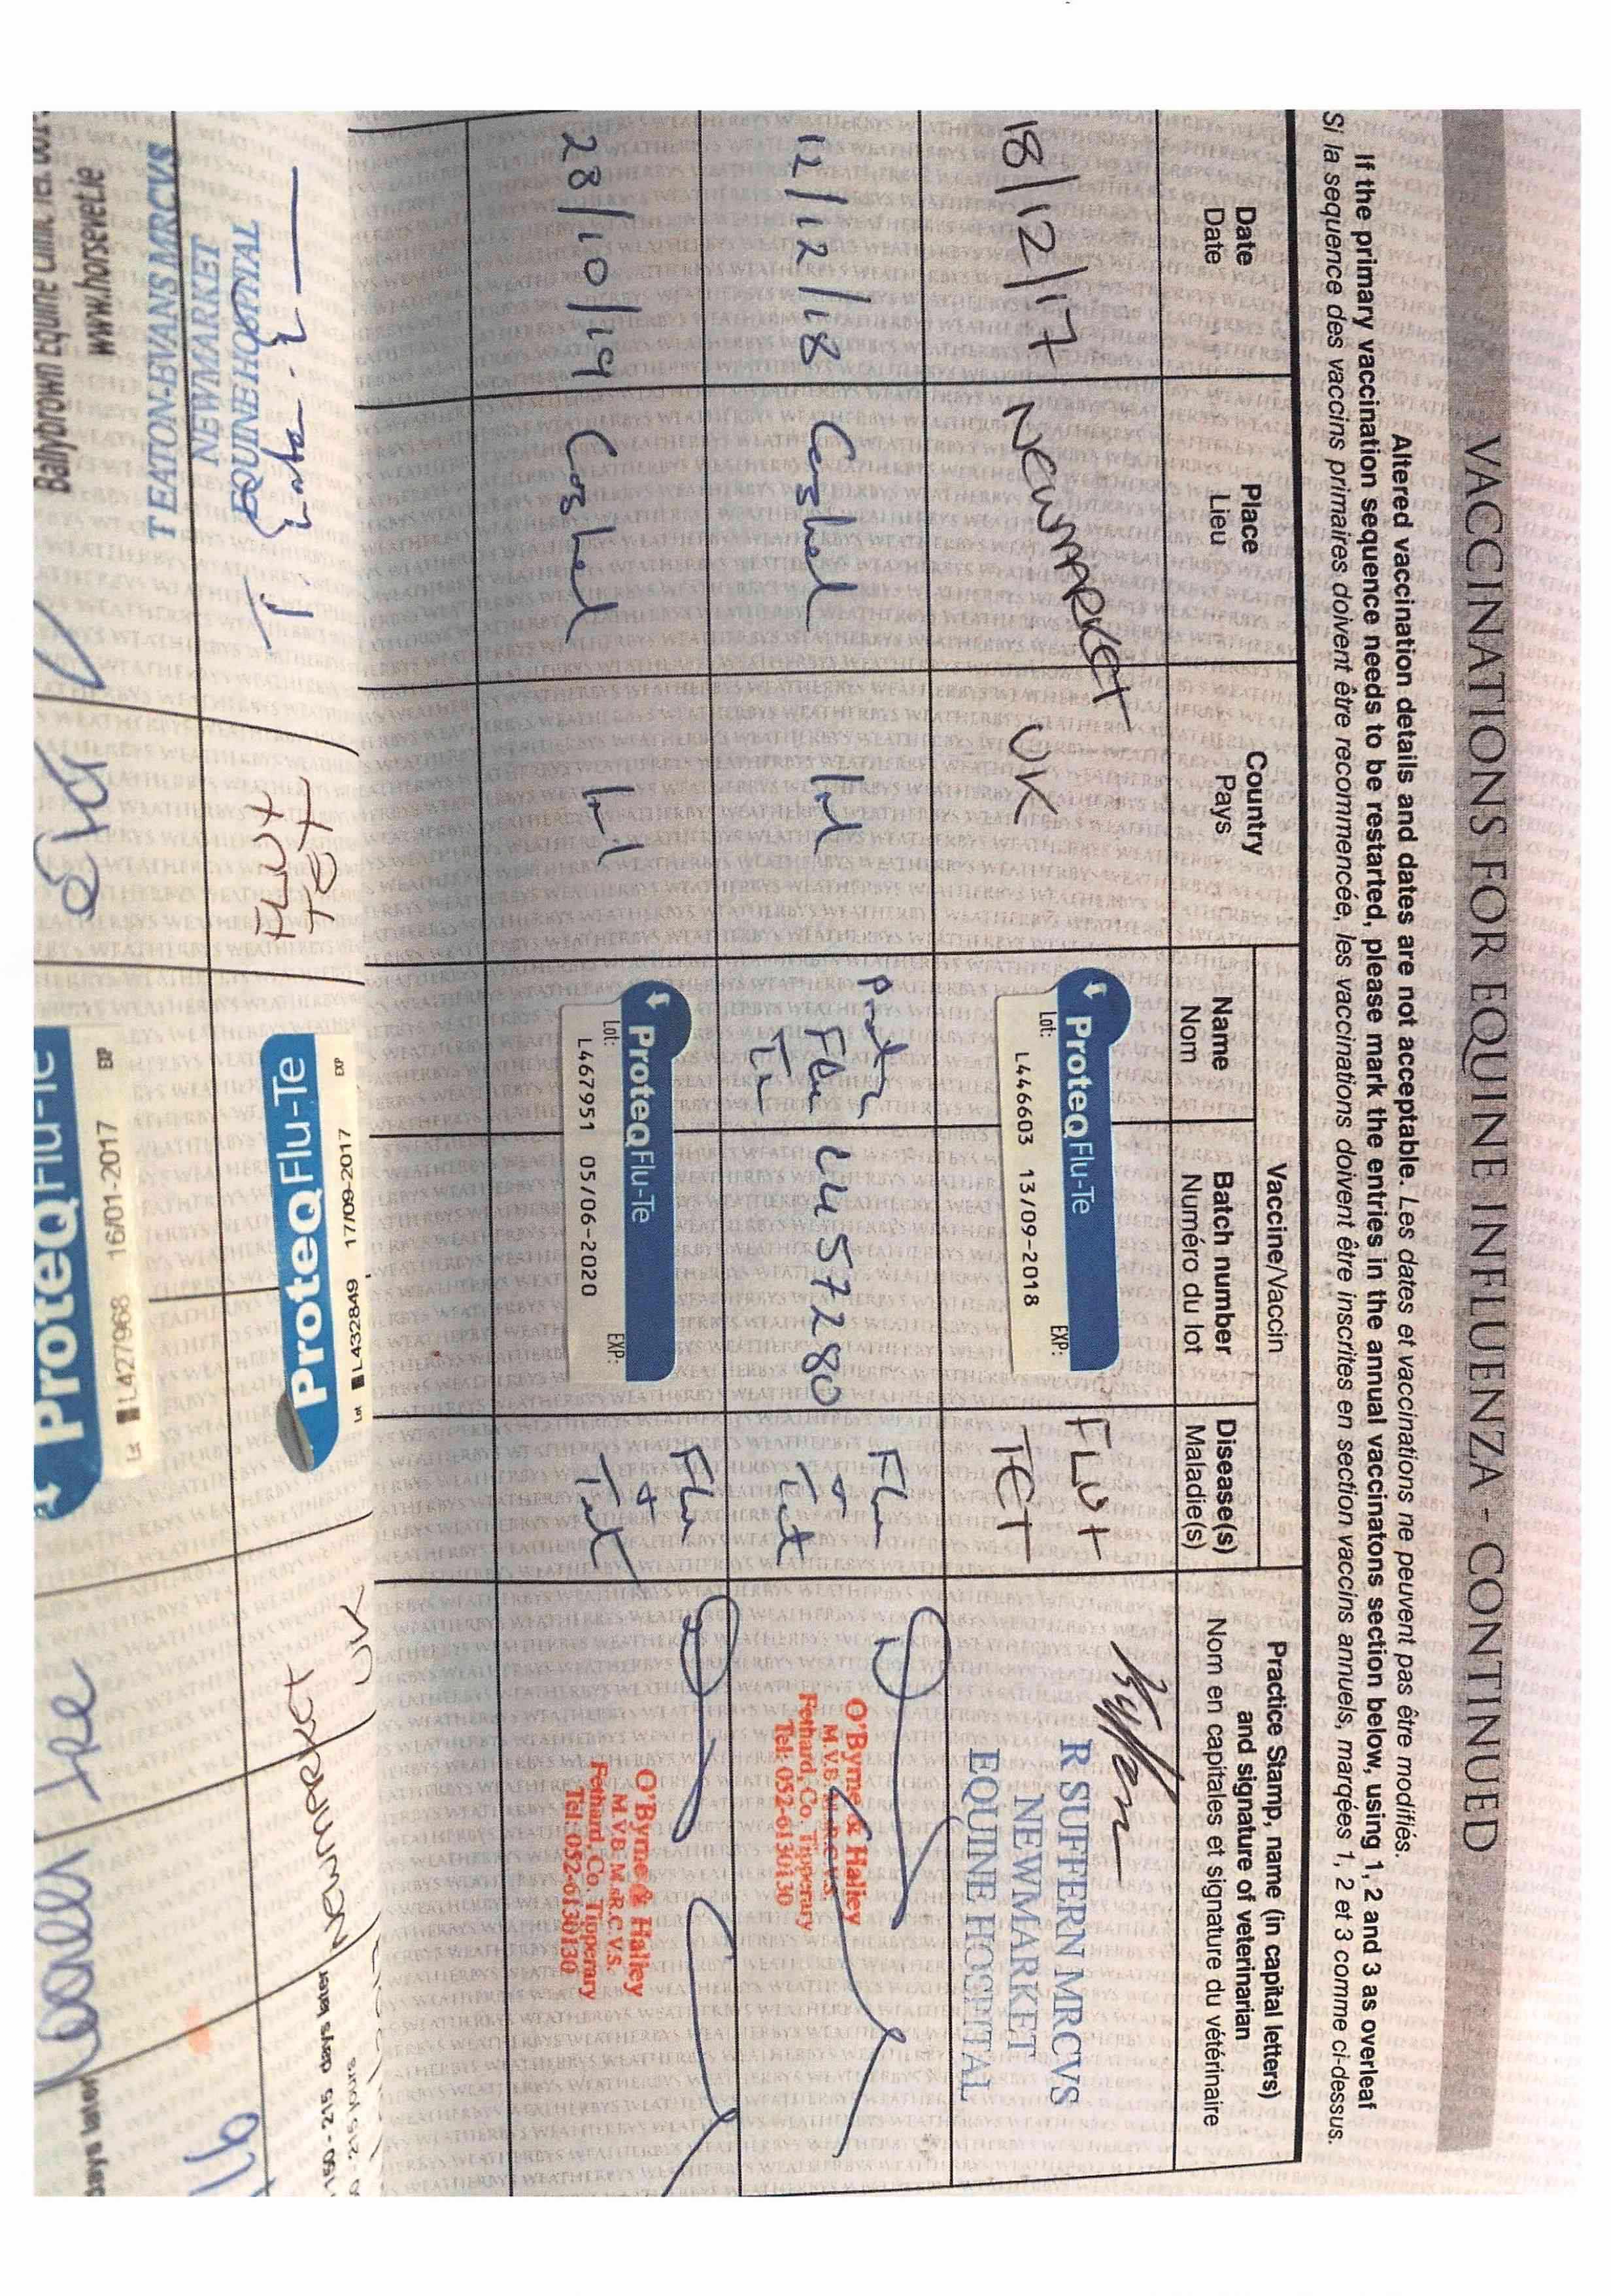 VACCINATIONS FOR EQUINE INFLUENZA - CONTINUED
Altered vaccination details and dates are not acceptable. Les dates et vaccinations ne peuvent pas être modifiés.
If the primary vaccination sequence needs to be restarted, please mark the entries in the annual vaccinatons section below, using 1, 2 and 3 as overleaf
Si la sequence des vaccins primaires doivent être recommencée, les vaccinations doivent être inscrites en section vaccins annuels, marqées 1, 2 et 3 comme ci-dessus.
Date
Date
Place
Lieu
Country
Pays
Vaccine/Vaccin
Name
Nom
Batch number
Numéro du lot
Disease(s)
Maladie(s)
Practice Stamp, name (in capital letters)
and signature of veterinarian
Nom en capitales et signature du vétérinaire
18/12/17
NEWMARKET
UK
ProteqFlu-Te
Lot:
EXP:
L446603 13/09-2018
FLU+
TET
R SUFFERN MRCVS
NEWMARKET
EQUINE HOSPITAL
12/12/18
Cashel
Irl
Flu
Te
L457280
Flu
+
Tet
O'Byrne & Halley
M.V.B. M.R.C.V.S.
Fethard, Co. Tipperary
Tel: 052-6130130
28/10/19
Cashel
Irl
ProteqFlu-Te
Lot:
EXP:
L467951 05/06-2020
Flu
+
Tet
O'Byrne & Halley
M.V.B. M.R.C.V.S.
Fethard, Co. Tipperary
Tel: 052-6130130
TEATON-EVANS MRCVS
NEWMARKET
EQUINE HOSPITAL
FLU+
TET
EXP 17/09-2017
Lot L432849
ProteqFlu-Te
NEWMARKET
UK
150 - 215 days later
Ballybrown Equine Clinic
www.horsevet.ie
EXP 16/01-2017
Lot L427968
ProteqFlu-Te
days later